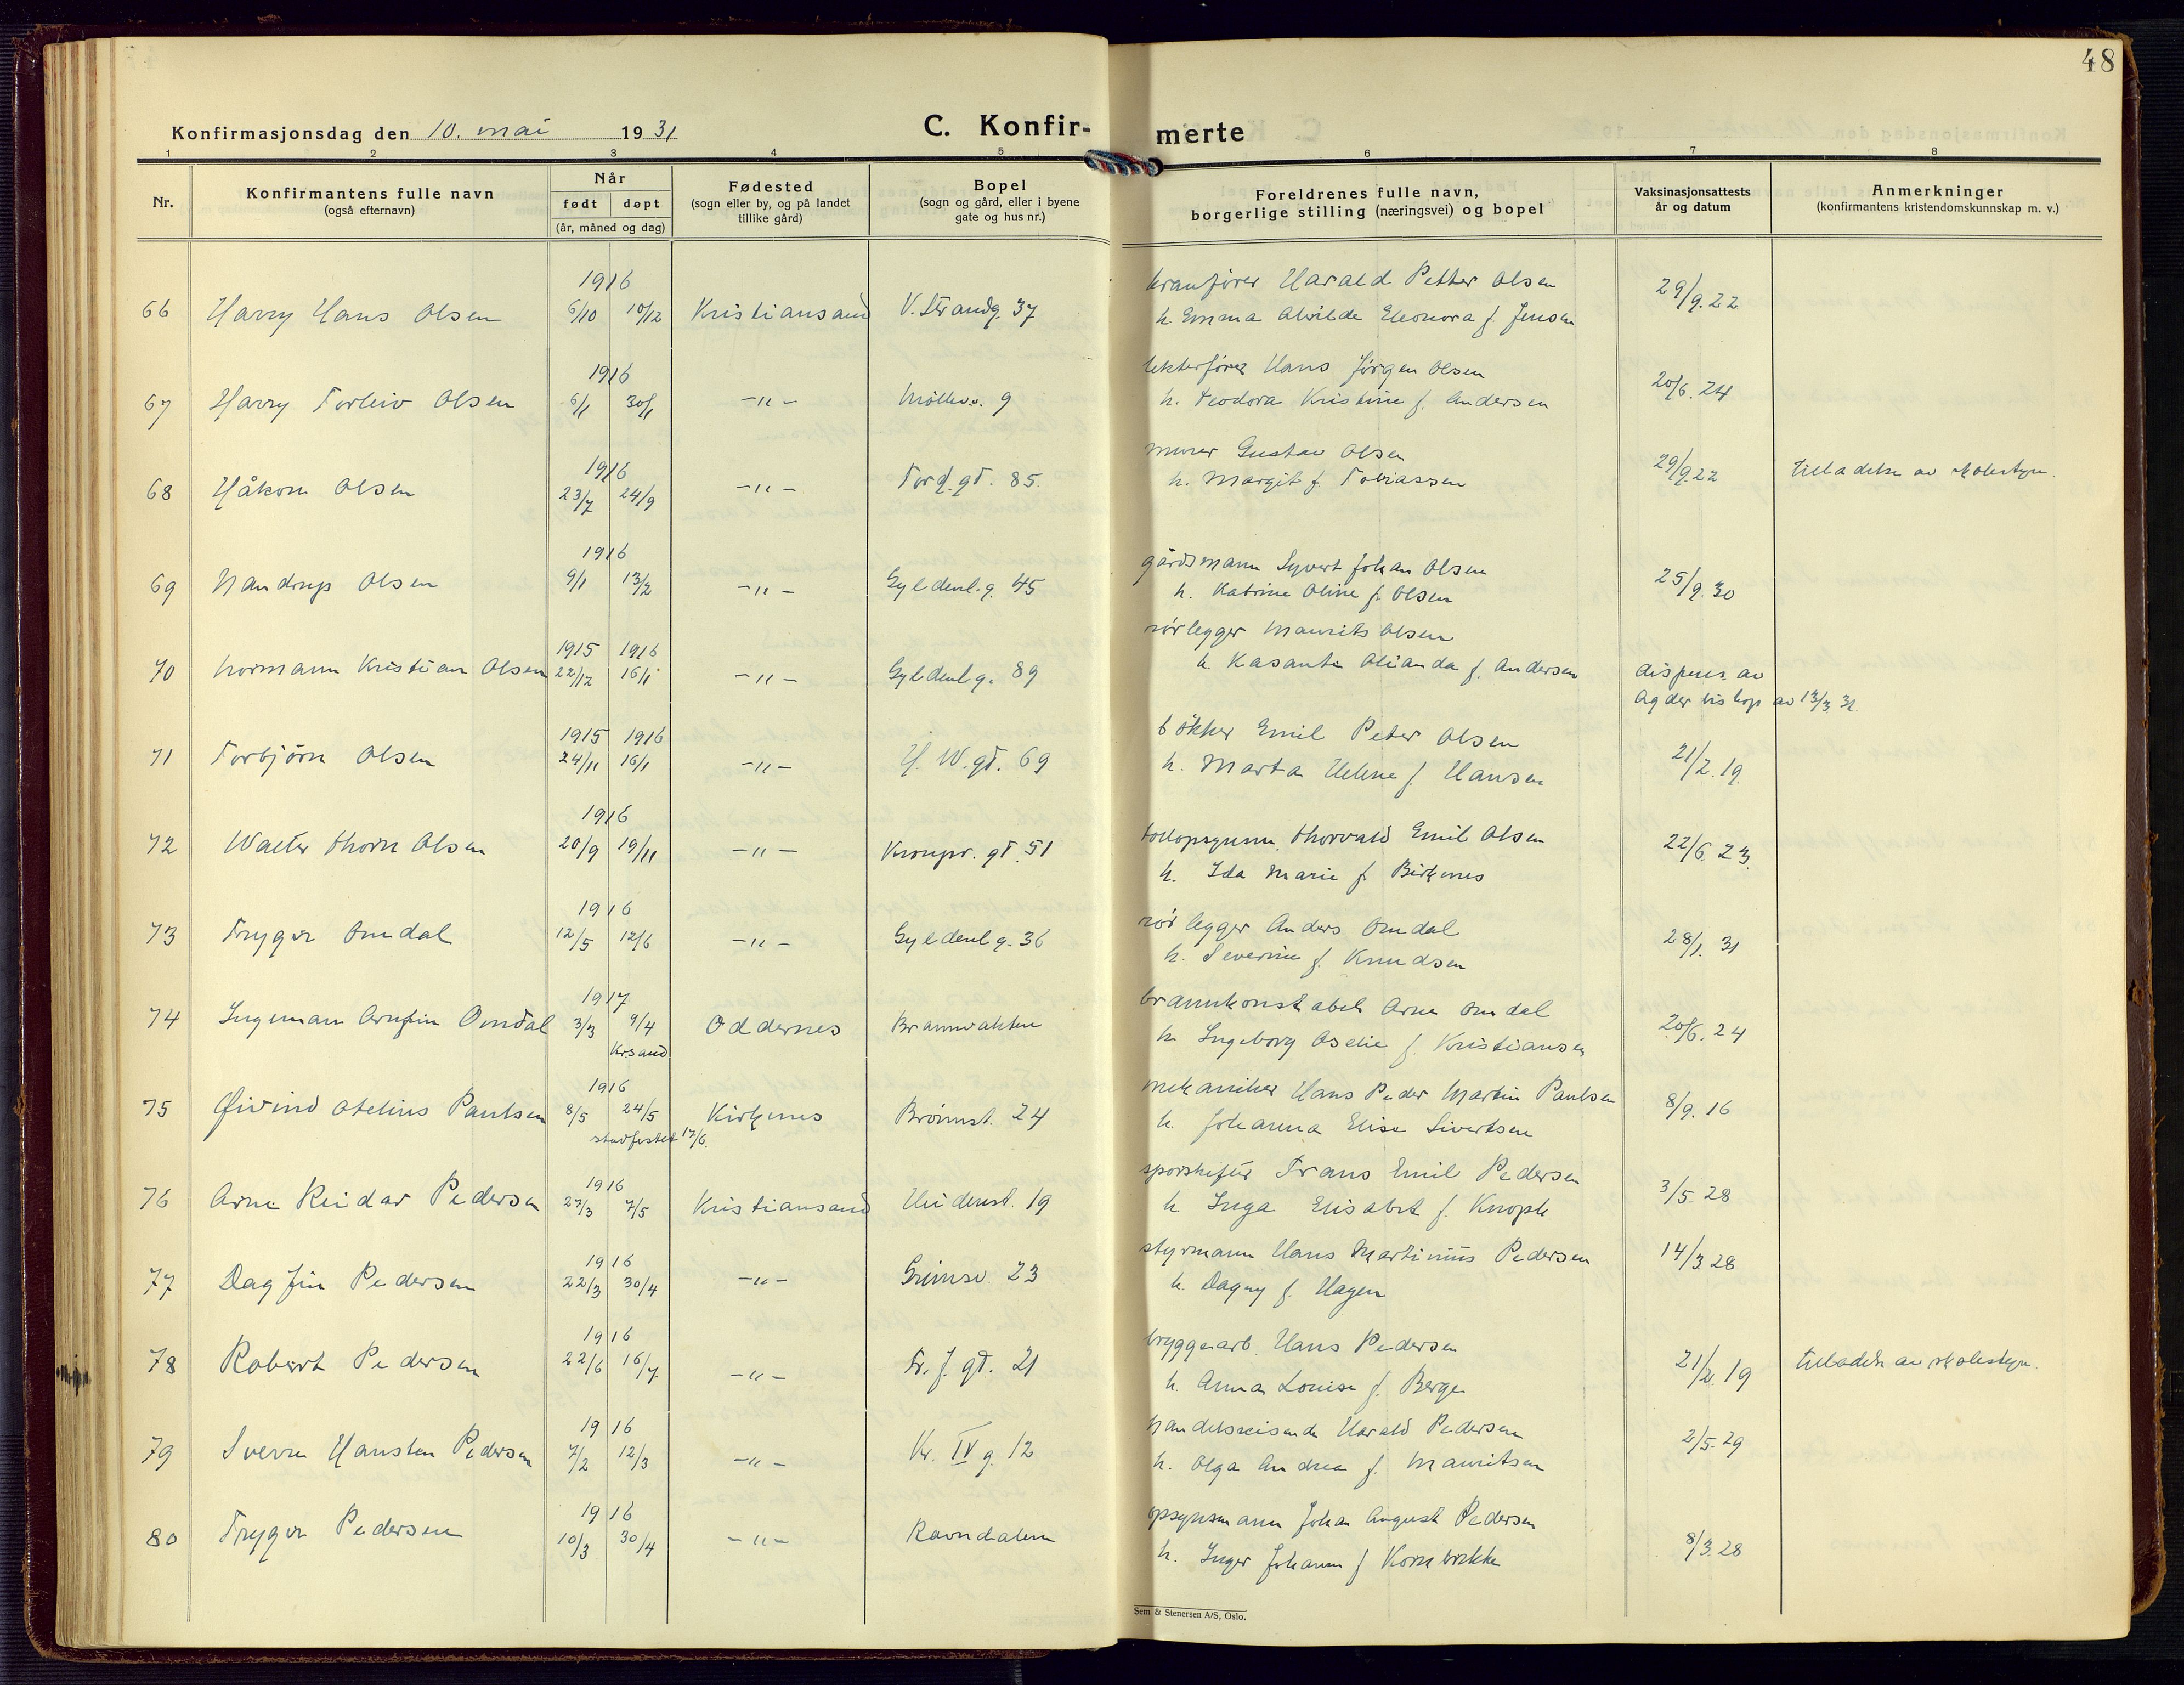 48
Konfirmasjonsdag den 10. mai 1931
C. Konfir-merte
1 2 3 4 5 6 7 8
Nr.
Konfirmantens fulle navn
(også efternavn)
Når
født døpt
(år, måned og dag)
Fødested
(sogn eller by, og på landet
tillike gård)
Bopel
(sogn og gård, eller i byene
gate og hus nr.)
Foreldrenes fulle navn,
borgerlige stilling (næringsvei) og bopel
Vaksinasjonsattests
år og datum
Anmerkninger
(konfirmantens kristendomskunnskap m. v.)
1916 kranfører Harald Petter Olsen
66 Harry Hans Olsen 6/10 10/12 Kristiansand V. Strandg. 37 h. Emma Alvilde Eleonora f. Jensen 29/9.22
1916 lekterfører Hans Jørgen Olsen
67 Harry Torleiv Olsen 6/1 30/1 -"- Møllev. 9 h. Teodora Kristine f. Andersen 20/6.24
1916 murer Gustav Olsen
68 Håkon Olsen 23/7 24/9 -"- Tord.gt. 85. h. Margit f. Tobiassen 29/9.22 tilladelse av skolestyr.
1916 gårdsmann Syvert Johan Olsen
69 Nandrup Olsen 9/1 13/2 -"- Gyldenl.g. 45 h. Katrine Oline f. Olsen 25/9.30
1915 1916 rørlegger Maurits Olsen
70 Normann Kristian Olsen 22/12 16/1 -"- Gyldenl.g. 89 h. Kasanta Olianda f. Andersen dispens. av
Agder biskop av 13/3.31.
1915 1916 bøkker Emil Peter Olsen
71 Torbjørn Olsen 24/11 16/1 -"- H. W. gt. 69 h. Marta Helene f. Hansen 21/2.19.
1916
72 Walter Thorn Olsen 20/9 19/11 -"- Kronpr. gt. 51 tollopsynsm. Thorvald Emil Olsen 22/6.23.
h. Ida Marie f. Birkenes
1916 rørlegger Anders Omdal
73 Trygve Omdal 12/5 12/6 -"- Gyldenl.g. 36 h. Severine f. Knudsen 28/1.31
1917 brannkonstabel Arne Omdal
74 Ingeman Arnfin Omdal 3/3 9/4 Oddernes Brannvakten h. Ingeborg Oselie f. Kristiansen 20/6.24
Krsand
1916 mekaniker Hans Peder Martin Paulsen
75 Øivind Otelius Paulsen 8/5 24/5 Kirkenes Brønnst. 24 h. Johanna Elise Sivertsen 8/9.16
stadfestet 17/6.
1916 sporskifter Frans Emil Pedersen
76 Arne Reidar Pedersen 27/3 7/5 Kristiansand Heidenst. 19 h. Inga Elisabet f. Knoph 3/5.28
1916 styrmann Hans Martinius Pedersen
77 Dagfin Pedersen 22/3 30/4 -"- Grimsv. 23 h. Dagny f. Hagen 14/3.28
1916 bryggearb. Hans Pedersen
78 Robert Pedersen 22/6 16/7 -"- Fr. f. gt. 21 h. Anna Louise f. Berge 21/2.19 tilladelse av skolestyr.
1916 handelsreisende Harald Pedersen
79 Sverre Hansten Pedersen 7/2 12/3 -"- Kr. IV g. 12 h. Olga Andrea f. Mauritsen 2/5.29
1916 opsynsmann Johan August Pedersen
80 Trygve Pedersen 10/3 30/4 -"- Ravndalen h. Inger Johanne f. Kornbrekke 8/3.28
Sem & Stenersen A/S, Oslo.